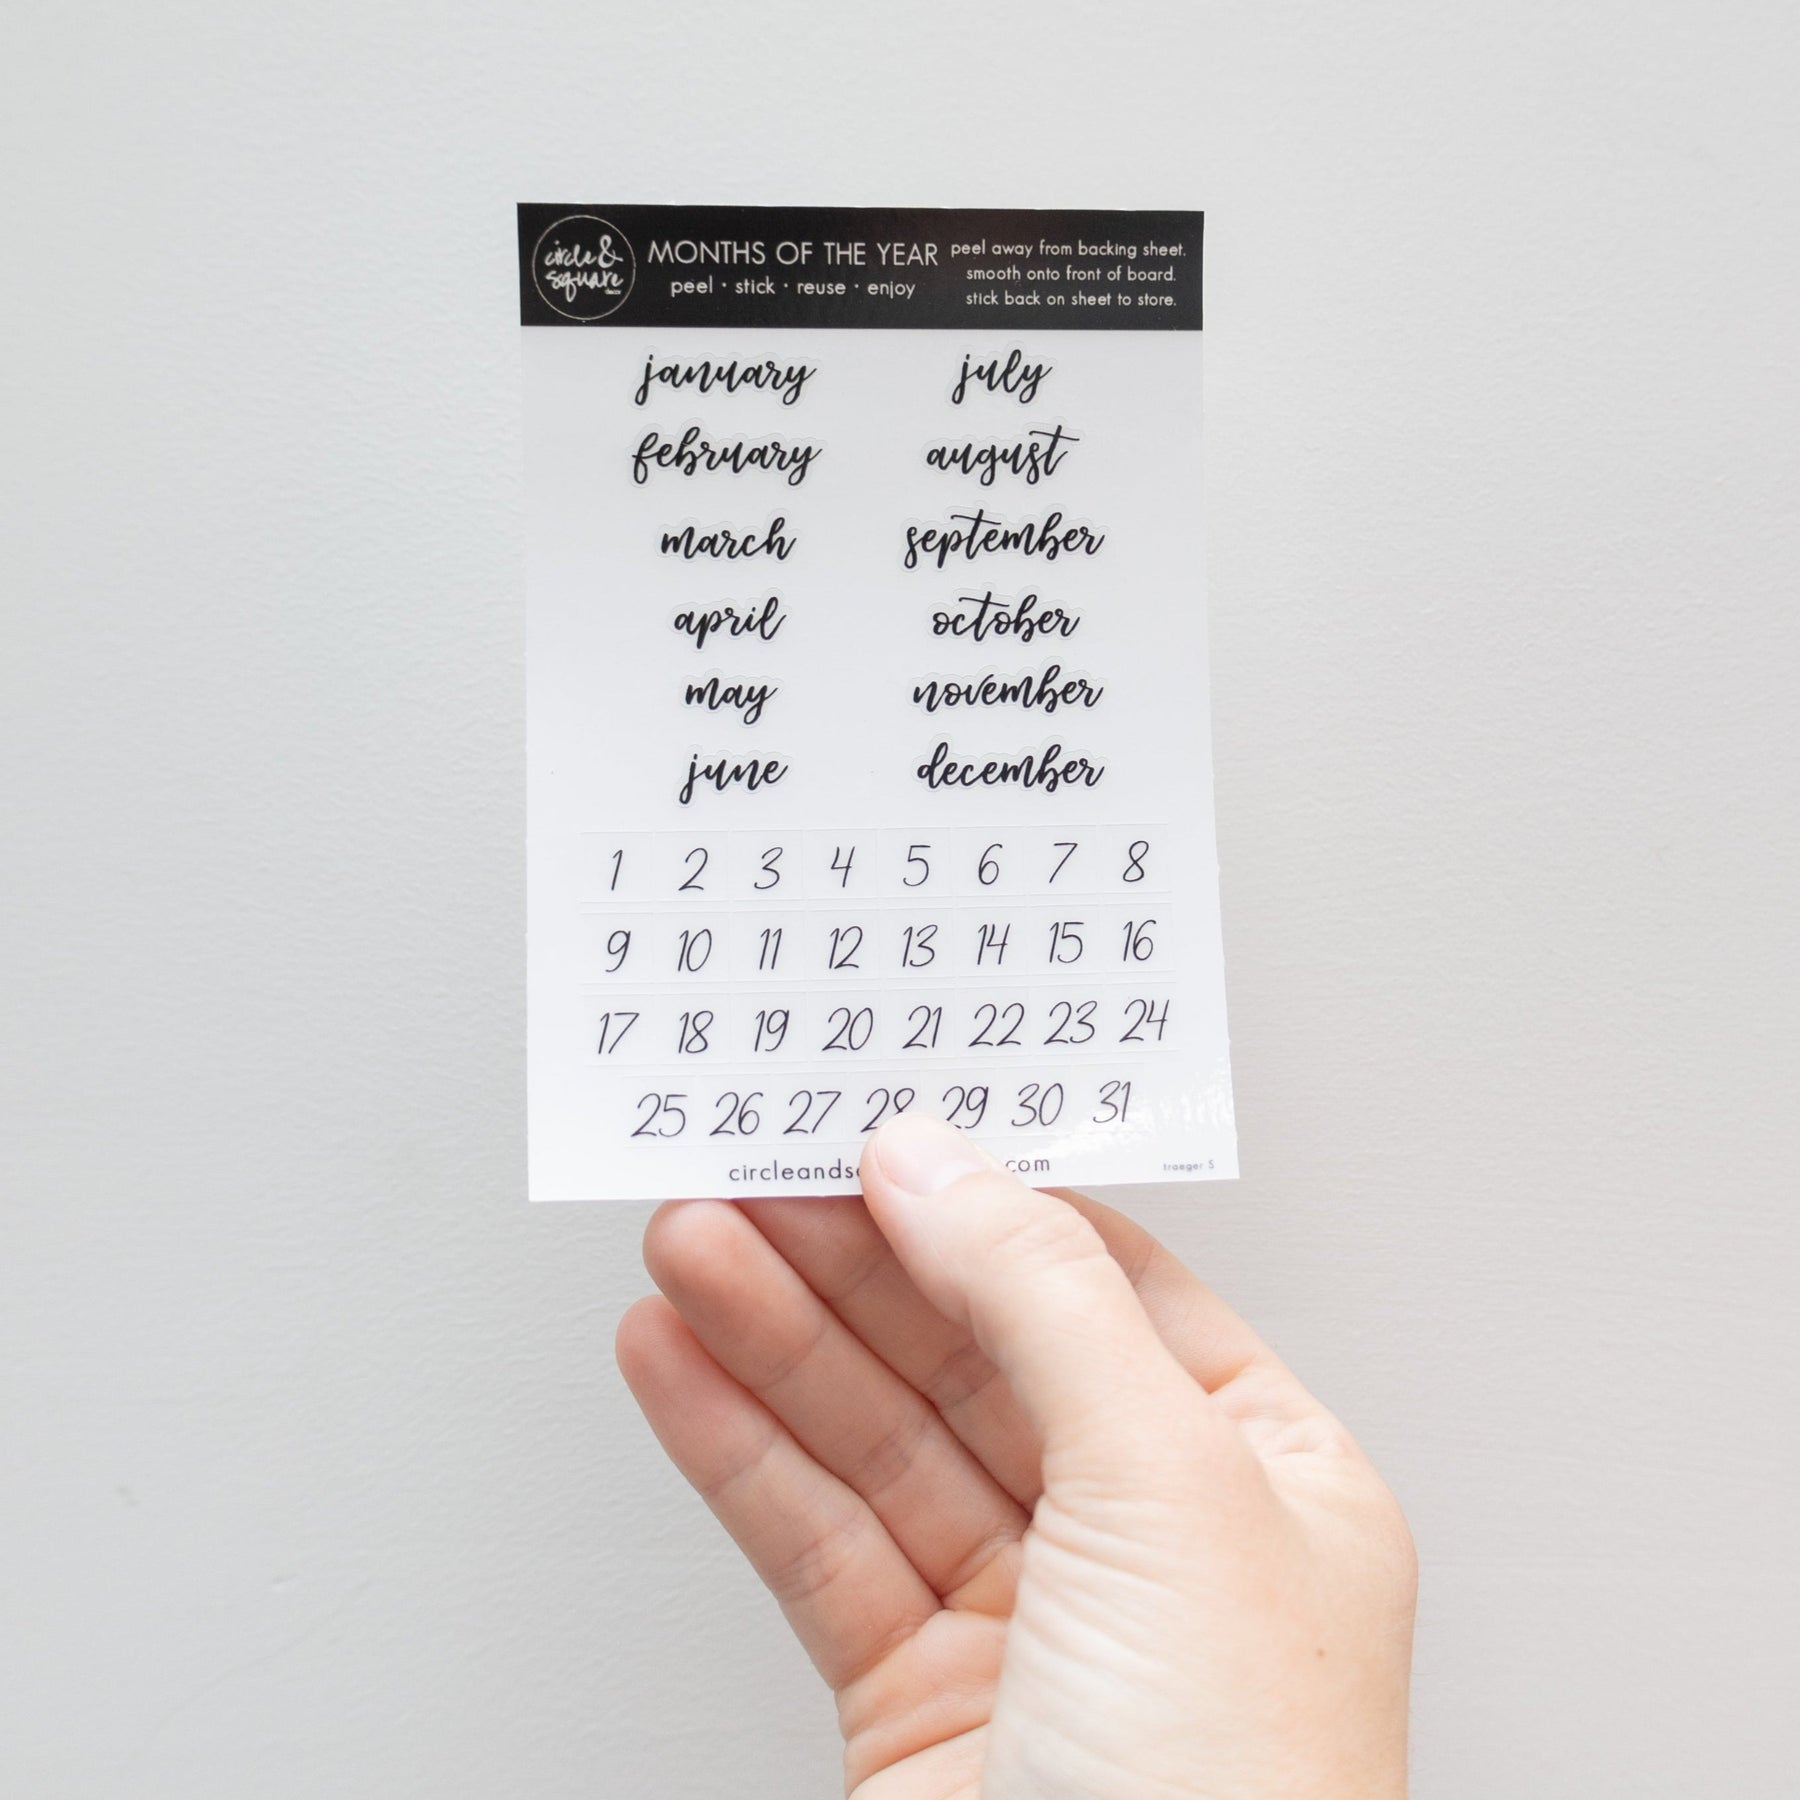 circle &
square
decor
MONTHS OF THE YEAR
peel · stick · reuse · enjoy
peel away from backing sheet.
smooth onto front of board.
stick back on sheet to store.
january
february
march
april
may
june
july
august
september
october
november
december
1 2 3 4 5 6 7 8
9 10 11 12 13 14 15 16
17 18 19 20 21 22 23 24
25 26 27 28 29 30 31
traeger S